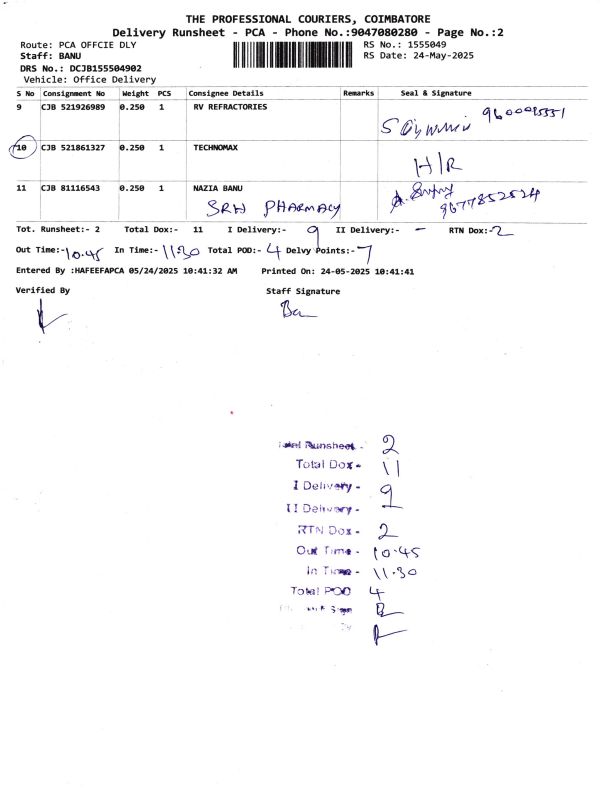 THE PROFESSIONAL COURIERS, COIMBATORE
Delivery Runsheet - PCA - Phone No.:9047080280 - Page No.:2
Route: PCA OFFCIE DLY RS No.: 1555049
Staff: BANU RS Date: 24-May-2025
DRS No.: DCJB155504902
Vehicle: Office Delivery
S No Consignment No Weight PCS Consignee Details Remarks Seal & Signature
9 CJB 521926989 0.250 1 RV REFRACTORIES
10 CJB 521861327 0.250 1 TECHNOMAX
H/R
11 CJB 81116543 0.250 1 NAZIA BANU
SRH PHARMACY 9677852524
Tot. Runsheet:- 2 Total Dox:- 11 I Delivery:- 9 II Delivery:- - RTN Dox:- 2
Out Time:- 10.45 In Time:- 11.30 Total POD:- 4 Delvy Points:- 7
Entered By :HAFEEFAPCA 05/24/2025 10:41:32 AM Printed On: 24-05-2025 10:41:41
Verified By Staff Signature
Total Runsheet - 2
Total Dox - 11
I Delivery - 9
II Delivery - -
RTN Dox - 2
Out Time - 10.45
In Time - 11.30
Total POD 4